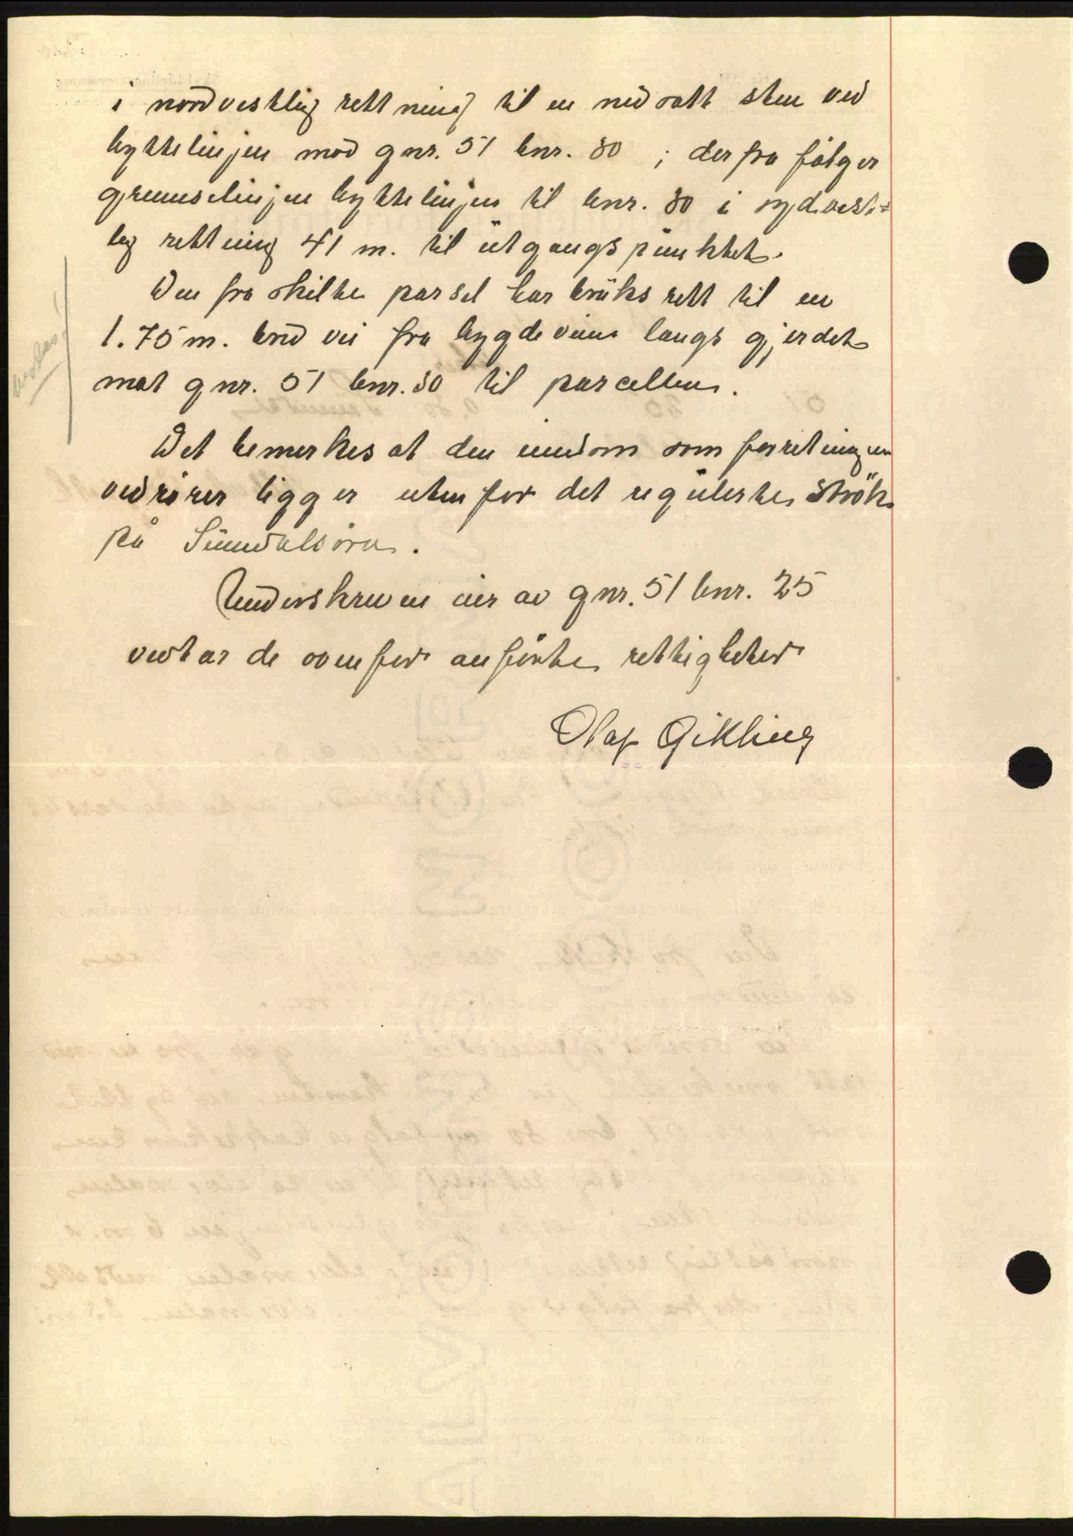 i nordvestlig rettning til en nedsatt sten ved
byttelinjen mod gnr. 51 bnr. 30 ; derfra følger
grenselinjen byttelinjen til bnr. 30 i sydvest=
lig rettning 41 m. til utgangspunktet.
Den fra skilte parsel har bruks rett til en
1.75 m. bred vei fra bygdeveien langs gjerdet
mot gnr. 51 bnr. 30 til parcellen.
Det bemerkes at den eiendom som forretningen
vedrører ligger uten for det regulerte strök
på Sunndalsøra.
Underskreven eier av gnr. 51 bnr. 25
vedtar de ovenfor anførte rettigheter
Olaf Gikling